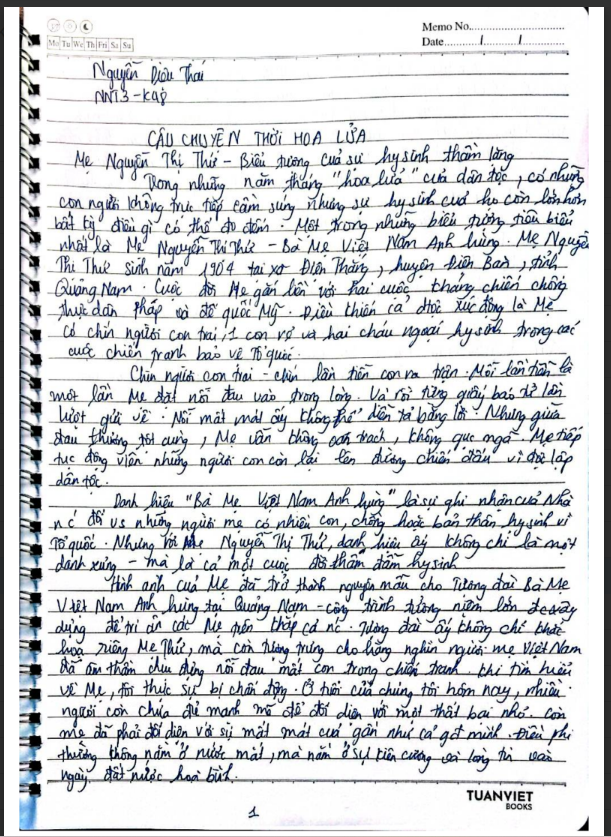 Memo No.
Mo Tu We Th Fri Sa Su
Date / /
Nguyễn Diệu Thái
NNT3 - K48
CÂU CHUYỆN THỜI HOA LỬA
Mẹ Nguyễn Thị Thứ - Biểu tượng của sự hy sinh thầm lặng
Trong những năm tháng "hoa lửa" của dân tộc, có những
con người không trực tiếp cầm súng nhưng sự hy sinh của họ còn lớn hơn
bất kỳ điều gì có thể đo đếm. Một trong những biểu tượng tiêu biểu
nhất là Mẹ Nguyễn Thị Thứ - Bà Mẹ Việt Nam Anh hùng. Mẹ Nguyễn
Thị Thứ sinh năm 1904 tại xã Điện Thắng, huyện Điện Bàn, tỉnh
Quảng Nam. Cuộc đời Mẹ gắn liền với hai cuộc kháng chiến chống
thực dân Pháp và đế quốc Mỹ. Điều khiến cả đtộc xúc động là Mẹ
có chín người con trai, 1 con rể và hai cháu ngoại hy sinh trong các
cuộc chiến tranh bảo vệ Tổ quốc.
Chín người con trai - chín lần tiễn con ra trận. Mỗi lần tiễn là
một lần Mẹ đặt nỗi đau vào trong lòng. Và rồi từng giấy báo tử lần
lượt gửi về. Nỗi mất mát ấy không thể diễn tả bằng lời. Nhưng giữa
đau thương tột cùng, Mẹ vẫn không oán trách, không gục ngã. Mẹ tiếp
tục động viên những người con còn lại lên đường chiến đấu vì độc lập
dân tộc.
Danh hiệu "Bà Mẹ Việt Nam Anh hùng" là sự ghi nhận của Nhà
nc đối vs những người mẹ có nhiều con, chồng hoặc bản thân hy sinh vì
Tổ quốc. Nhưng với Mẹ Nguyễn Thị Thứ, danh hiệu ấy không chỉ là một
danh xưng - mà là cả một cuộc đời thấm đẫm hy sinh.
Hình ảnh của Mẹ đã trở thành nguyên mẫu cho Tượng đài Bà Mẹ
Việt Nam Anh hùng tại Quảng Nam - công trình tưởng niệm lớn đc xây
dựng để tri ân các Mẹ trên khắp cả nc. Tượng đài ấy không chỉ khắc
họa riêng Mẹ Thứ, mà còn tượng trưng cho hàng nghìn người mẹ Việt Nam
đã âm thầm chịu đựng nỗi đau mất con trong chiến tranh. Khi tìm hiểu
về Mẹ, tôi thực sự bị chấn động. Ở tuổi của chúng tôi hôm nay, nhiều
người còn chưa đủ mạnh mẽ để đối diện với một thất bại nhỏ. Còn
mẹ đã phải đối diện với sự mất mát của gần như cả gđ mình. Điều phi
thường không nằm ở nước mắt, mà nằm ở sự kiên cường và lòng tin vào
ngày đất nước hoà bình.
TUANVIET
BOOKS
1